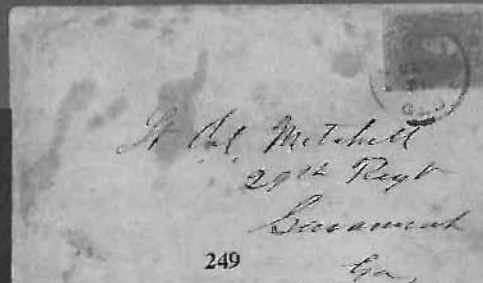 Lt Col Mitchell
29th Regt
Savannah
Ga,
249